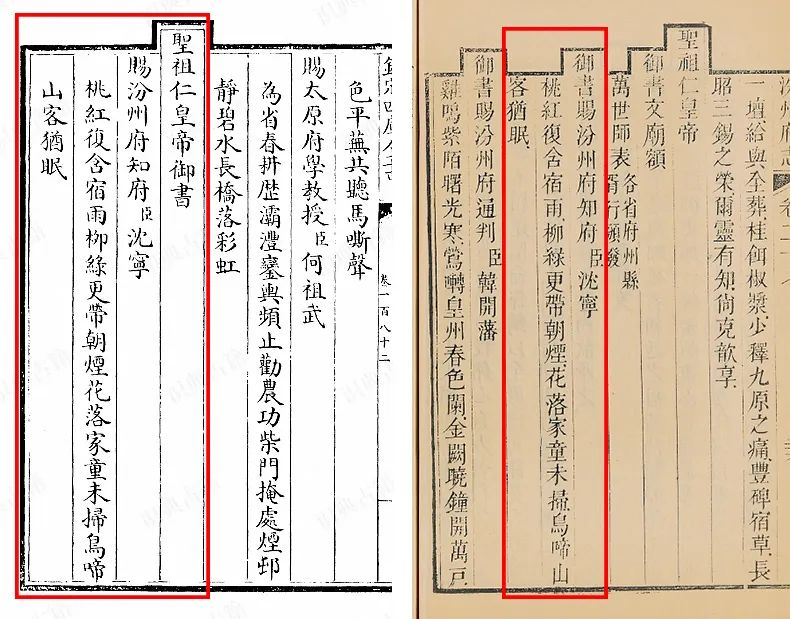 卷一百八十二
色平蕪共聽馬嘶聲
賜太原府學教授臣何祖武
為省春耕歷灞灃鑾輿頻止勸農功柴門掩處煙邨
靜碧水長橋落彩虹
聖祖仁皇帝御書
賜汾州府知府臣沈寧
桃紅復含宿雨柳綠更帶朝煙花落家童未掃鳥啼
山客猶眠
汾州府志
一壇給與全葬桂餌椒漿少釋九原之痛豐碑宿草長
昭三錫之榮爾靈有知尚克歆享
聖祖仁皇帝
御書文廟額
萬世師表各省府州縣胥行頒發
御書賜汾州府知府臣沈寧
桃紅復含宿雨柳綠更帶朝煙花落家童未掃鳥啼山
客猶眠
御書賜汾州府通判臣韓開藩
雞鳴紫陌曙光寒鶯囀皇州春色闌金闕曉鐘開萬戶